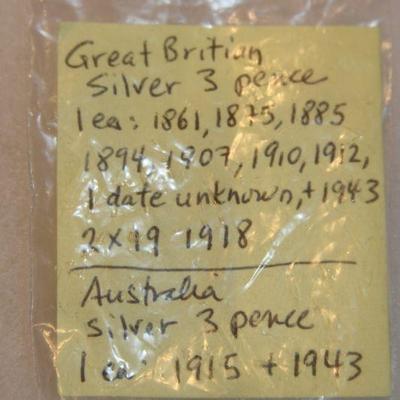 Great Britian
silver 3 pence
1 ea: 1861, 1875, 1885
1894, 1907, 1910, 1912,
1 date unknown, + 1943
2 x 19 1918
Australia
silver 3 pence
1 ea: 1915 + 1943